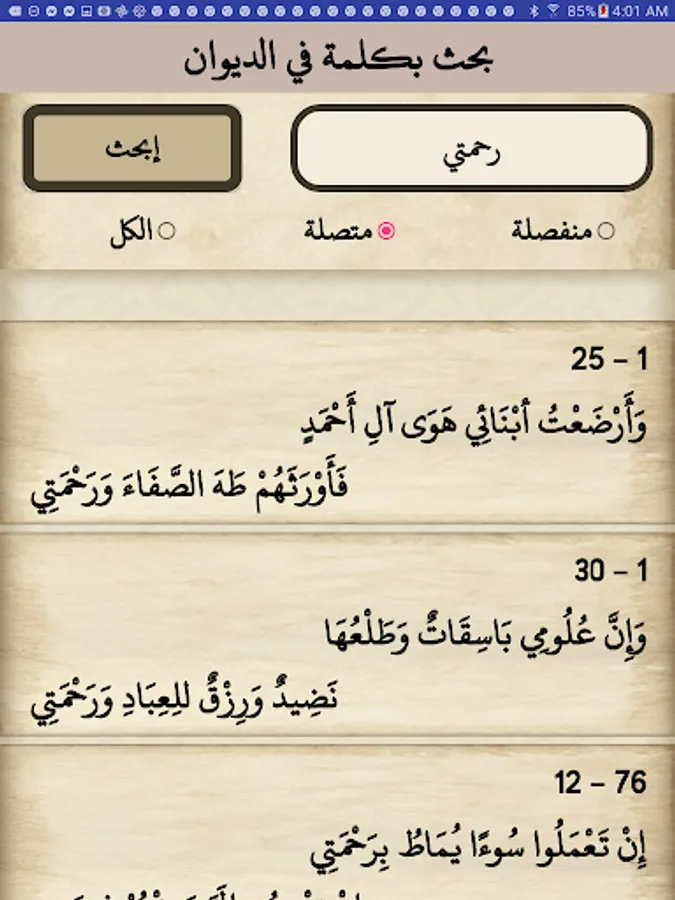 85% 4:01 AM
بحث بكلمة في الديوان
رحمتي
إبحث
منفصلة
متصلة
الكل
25 – 1
وَأَرْضَعْتُ أبْنَائِي هَوَى آلِ أَحْمَدٍ
فَأَوْرَثَهُمْ طَهَ الصَّفَاءَ وَرَحْمَتِي
30 – 1
وَإِنَّ عُلُومِي بَاسِقَاتٌ وَطَلْعُهَا
نَضِيدٌ وَرِزْقٌ للِعِبَادِ وَرَحْمَتِي
12 – 76
إِنْ تَعْمَلُوا سُوءًا يُمَاطُ بِرَحْمَتِي